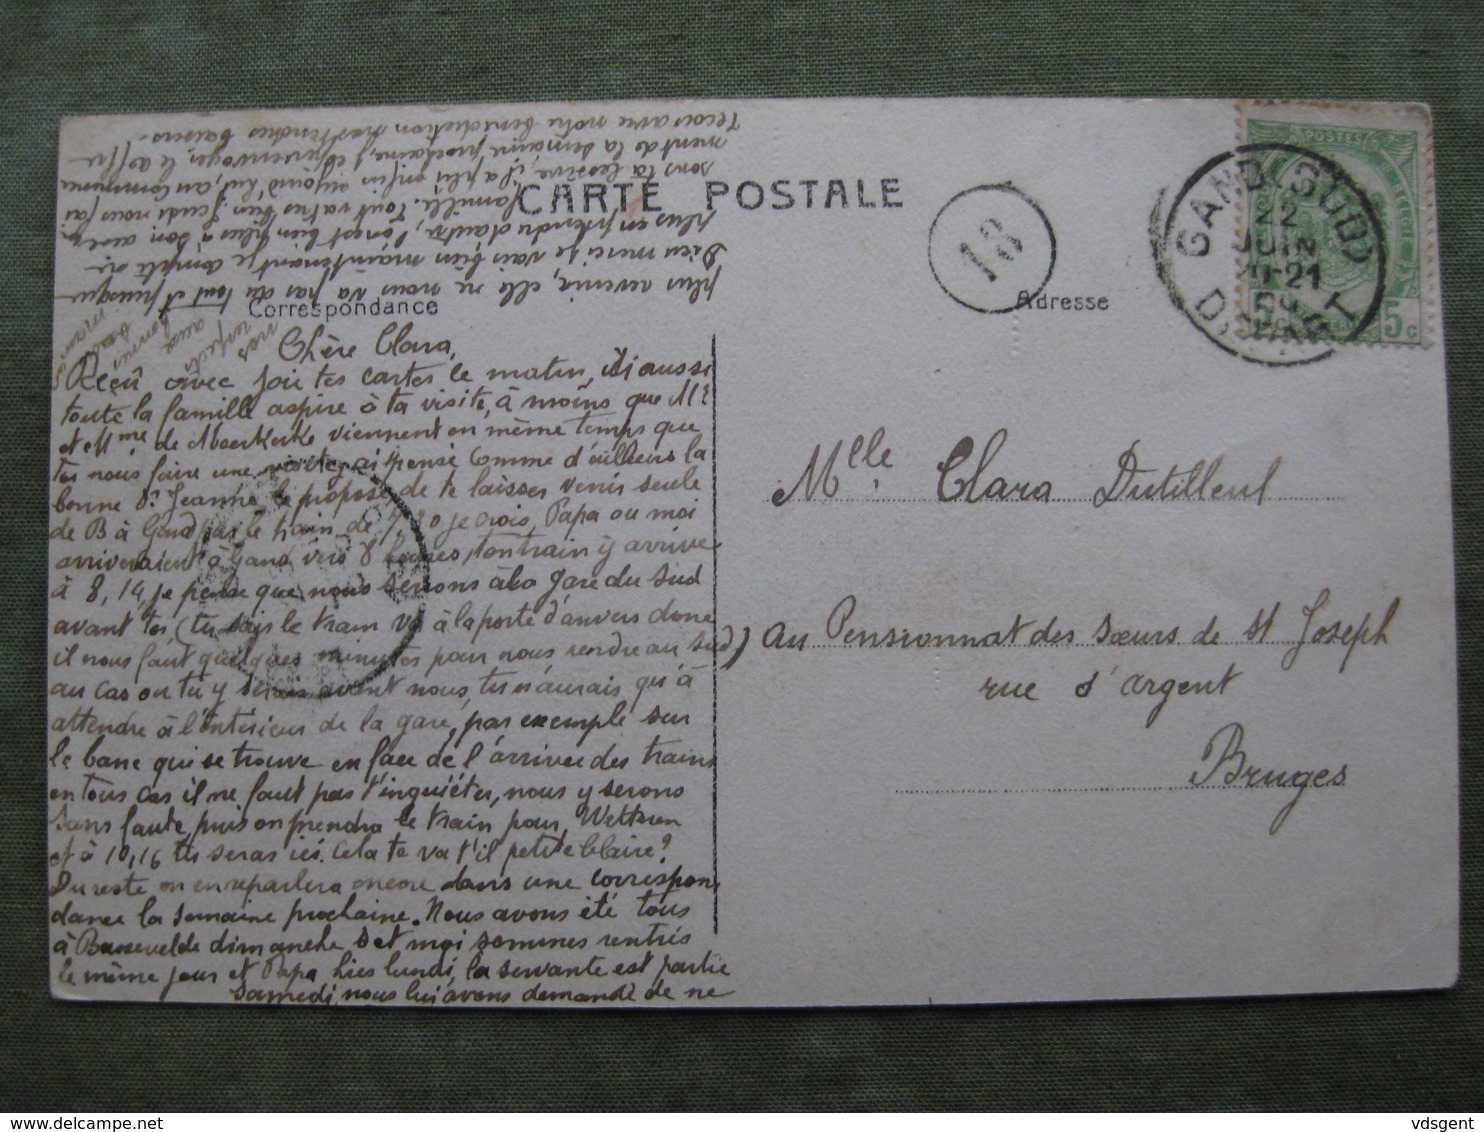 CARTE POSTALE
Correspondance
Adresse
18
GAND (SUD)
22
JUIN
21
09
DÉPART
POSTES
5c
Chère Clara,
Reçu avec joie tes cartes le matin, Si aussi
toute la famille aspire à ta visite, à moins que Mr
et Mme de Maerkerke viennent en même temps que
toi nous faire une visite, ai pensé comme d'ailleurs la
bonne Sr Jeanne le propose de te laisser venir seule
de B à Gand par le train de 7,20 je crois, Papa ou moi
arriveraient à Gand vers 8 heures, ton train y arrive
à 8,14, je pense que nous serions à la gare du Sud
avant toi (tu sais le train va à la porte d'anvers donc
il nous faut quelques minutes pour nous rendre au sud)
au cas ou tu y serais avant nous, tu n'aurais qu'à
attendre à l'intérieur de la gare, par exemple sur
le banc qui se trouve en face de l'arrivée des trains
en tous cas il ne faut pas t'inquiéter, nous y serons
sans faute, puis on prendra le train pour Wetteren
et à 10,16 tu seras ici. Cela te va t'il petite Claire?
Du reste on en reparlera encore dans une correspon
dance la semaine prochaine. Nous avons été tous
à Bassevelde dimanche S et moi sommes rentrés
le même jour et Papa hier lundi, la servante est partie
samedi nous lui avons demandé de ne
plus revenir, elle ne nous va pas du tout et puisque
Dieu merci je vais bien maintenant, je compte ne
plus en prendre d'autre, l'on est bien plus à son aise en
famille. Tout va très bien, Jeudi nous fai
sons la lessive, il a plu enfin aujourd'hui, au commence
ment de la semaine prochaine, j'espère renvoyer le coffre
avec notre bénédiction nos tendres baisers
nos
respects
aux
bonnes
Mlle Clara Dutilleul
au Pensionnat des Sœurs de St Joseph
rue d'argent
Bruges
vdsgent